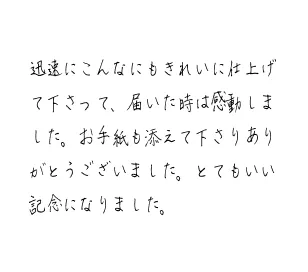 迅速にこんなにもきれいに仕上げ
て下さって、届いた時は感動しま
した。お手紙も添えて下さりあり
がとうございました。とてもいい
記念になりました。